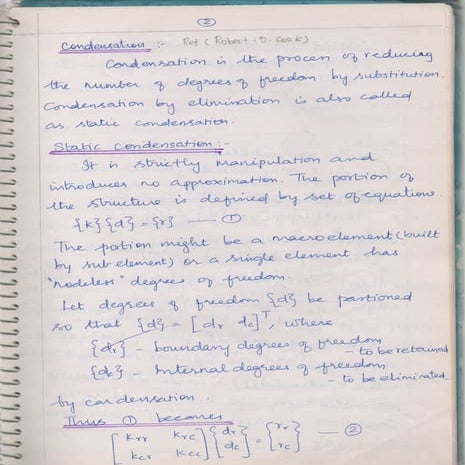 2
Condensation :- Ref (Robert. D. Cook)
Condensation is the process of reducing
the number of degrees of freedom by substitution.
Condensation by elimination is also called
as static condensation.
Static Condensation :-
It is strictly manipulation and
introduces no approximation. The portion of
the structure is defined by set of equations.
{k}{d} = {r} — ①
The portion might be a macroelement (built
by sub element) or a single element has
"nodeless" degrees of freedom.
Let degrees of freedom {d} be partioned
so that {d} = [dr dc]ᵀ, where
{dr} - boundary degrees of freedom
- to be retained
{dc} - Internal degrees of freedom
- to be eliminated
by condensation.
Thus ① becomes
[krr krc] {dr} = {rr} — ②
[kcr kcc] {dc} {rc}